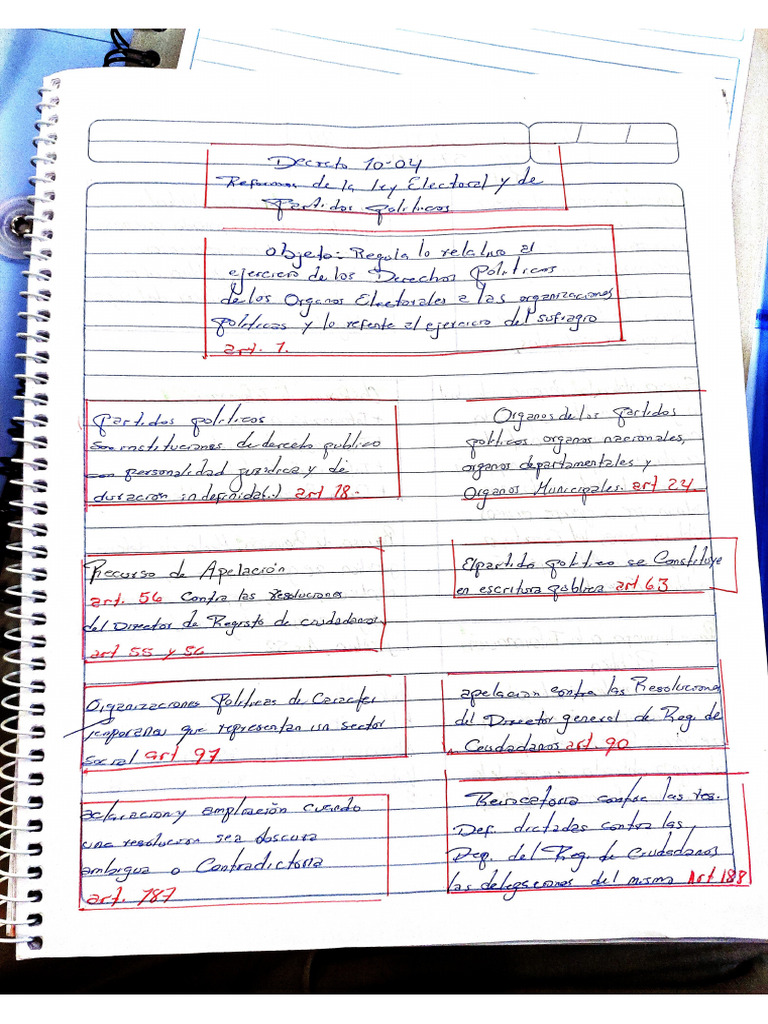 Decreto 10-04
Reformas de la ley Electoral y de
Partidos politicos
Objeto: Regula lo relativo al
ejercicio de los Derechos Politicos
de los Organos Electorales a las organizaciones
politicas y lo referente al ejercicio del sufragio
art. 1.
Partidos politicos
Son instituciones de derecho publico
con personalidad juridica y de
duracion indefinida(.) art 18.
Organos de los partidos
politicos organos nacionales,
organos departamentales y
Organos Municipales. art 24.
Recurso de Apelación
art. 56 Contra las resoluciones
del Director de Registo de ciudadanos
art 55 y 56
El partido politico se Constituye
en escritura pública art 63
Organizaciones Politicas de Caracter
temporanas que representan un sector
Social art 97
apelacion contra las Resoluciones
del Director general de Reg. de
Ciudadanos art. 90
aclaracion y ampliación cuando
una resolución sea obscura
ambigua o Contradictoria
art. 187
Revocatoria contra las res.
Def. dictadas contra las
Dep. del Reg. de Ciudadanos
las delegaciones del mismo Art 188